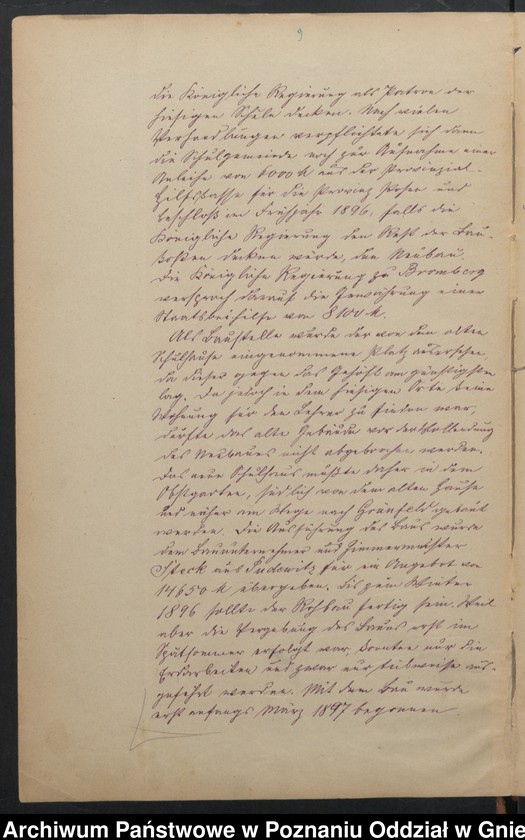 9
die Königliche Regierung als Patron der
hiesigen Schule decken. Nach vielen
Verhandlungen verpflichtete sich dann
die Schulgemeinde noch zur Aufnahme einer
Anleihe von 6000 M aus der Provinzial-
Hilfskasse für die Provinz Posen und
beschloß im Frühjahr 1896, falls die
Königliche Regierung den Rest der Bau-
kosten decken würde, den Neubau.
Die Königliche Regierung zu Bromberg
versprach darauf die Gewährung einer
Staatsbeihilfe von 8100 M.
Als Baustelle wurde der von dem alten
Schulhause eingenommene Platz ausersehen,
da dieser gegen das Gehöft am günstigsten
lag. Da jedoch in dem hiesigen Orte keine
Wohnung für den Lehrer zu finden war,
durfte das alte Gebäude vor der Vollendung
des Neubaues nicht abgebrochen werden.
Das neue Schulhaus mußte daher in dem
Obstgarten, südlich von dem alten Hause
und näher am Wege nach Grünfeld gebaut
werden. Die Ausführung des Baus wurde
dem Bauunternehmer und Zimmermeister
Steck aus Pudewitz für ein Angebot von
14650 M übergeben. Bis zum Winter
1896 sollte der Rohbau fertig sein. Weil
aber die Vergebung des Baues erst im
Spätsommer erfolgt war, konnten nur die
Erdarbeiten und zwar nur teilweise aus-
geführt werden. Mit dem Bau wurde
erst anfangs März 1897 begonnen.
Archiwum Państwowe w Poznaniu Oddział w Gnie